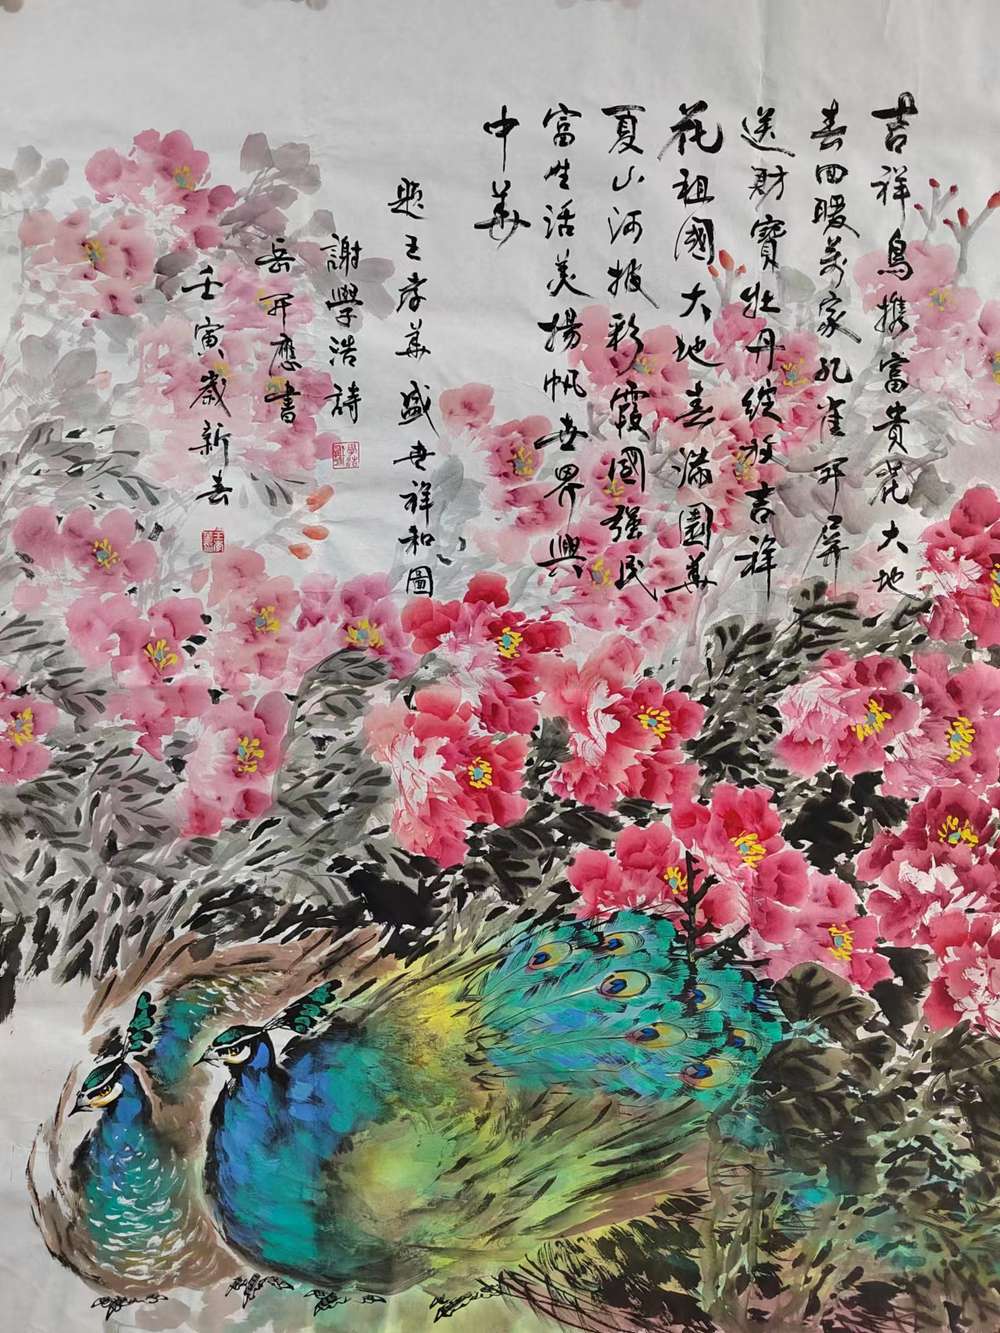 吉祥鳥携富貴花大地
春回暖萬家孔雀開屏
送財寶牡丹綻放吉祥
花祖國大地春滿園華
夏山河披彩霞國強民
富生活美揚帆世界興
中華
題王孝華盛世祥和圖
謝學浩詩
岳開應書
壬寅歲新春